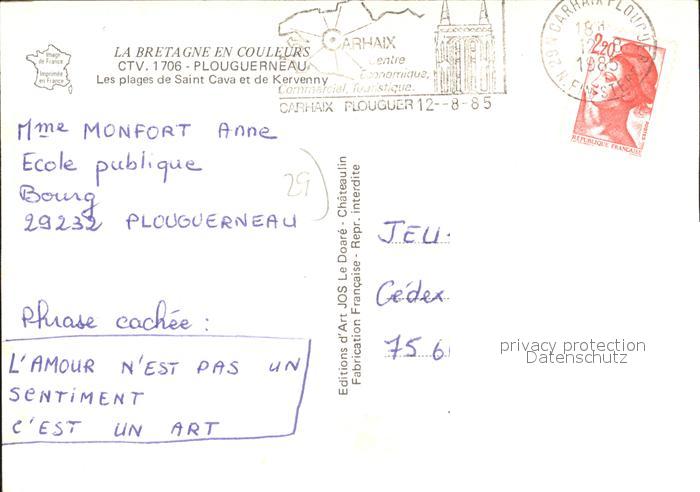 Image de France
Imprimée en France
LA BRETAGNE EN COULEURS
CTV. 1706 - PLOUGUERNEAU
Les plages de Saint Cava et de Kervenny
CARHAIX
Centre
Economique,
Commercial, Touristique.
CARHAIX PLOUGUER 12--8-85
1985
FINISTERE
2,20
REPUBLIQUE FRANÇAISE
Mme MONFORT Anne
Ecole publique
Bourg
29232 PLOUGUERNEAU
29
Phrase cachée :
L'AMOUR N'EST PAS UN
SENTIMENT
C'EST UN ART
Editions d'Art JOS Le Doaré - Châteaulin
Fabrication Française - Repr. interdite
JEU
Cédex
75 6
privacy protection
Datenschutz